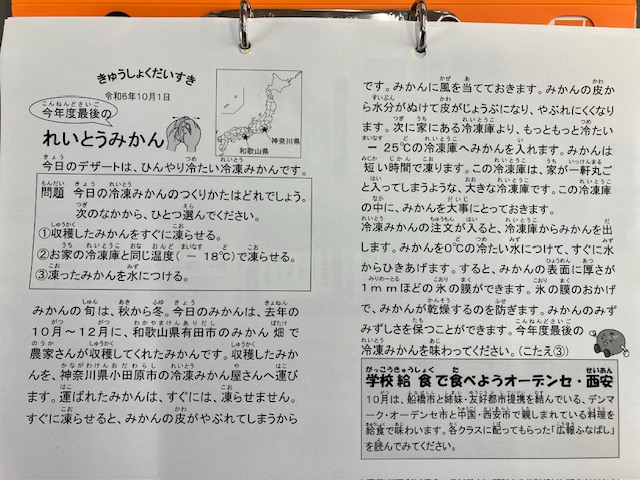 きゅうしょくだいすき
令和6年10月1日
今年度最後の
れいとうみかん
神奈川県
和歌山県
今日のデザートは、ひんやり冷たい冷凍みかんです。
問題 今日の冷凍みかんのつくりかたはどれでしょう。
次のなかから、ひとつ選んでください。
①収穫したみかんをすぐに凍らせる。
②お家の冷凍庫と同じ温度(-18℃)で凍らせる。
③凍ったみかんを水につける。
みかんの旬は、秋から冬。今日のみかんは、去年の
10月~12月に、和歌山県有田市のみかん畑で
農家さんが収穫してくれたみかんです。収穫したみか
んを、神奈川県小田原市の冷凍みかん屋さんへ運び
ます。運ばれたみかんは、すぐには、凍らせません。
すぐに凍らせると、みかんの皮がやぶれてしまうから
です。みかんに風を当てておきます。みかんの皮か
ら水分がぬけて皮がじょうぶになり、やぶれにくくなり
ます。次に家にある冷凍庫より、もっともっと冷たい
-25℃の冷凍庫へみかんを入れます。みかんは
短い時間で凍ります。この冷凍庫は、家が一軒丸ご
と入ってしまうような、大きな冷凍庫です。この冷凍庫
の中に、みかんを大事にとっておきます。
冷凍みかんの注文が入ると、冷凍庫からみかんを出
します。みかんを0℃の冷たい水につけて、すぐに水
からひきあげます。すると、みかんの表面に厚さが
1mmほどの氷の膜ができます。氷の膜のおかげ
で、みかんが乾燥するのを防ぎます。みかんのみず
みずしさを保つことができます。今年度最後の
冷凍みかんを味わってください。(こたえ③)
学校給食で食べようオーデンセ・西安
10月は、船橋市と姉妹・友好都市提携を結んでいる、デンマ
ーク・オーデンセ市と中国・西安市で親しまれている料理を
給食で味わいます。各クラスに配ってもらった「広報ふなばし」
を読んでみてください。